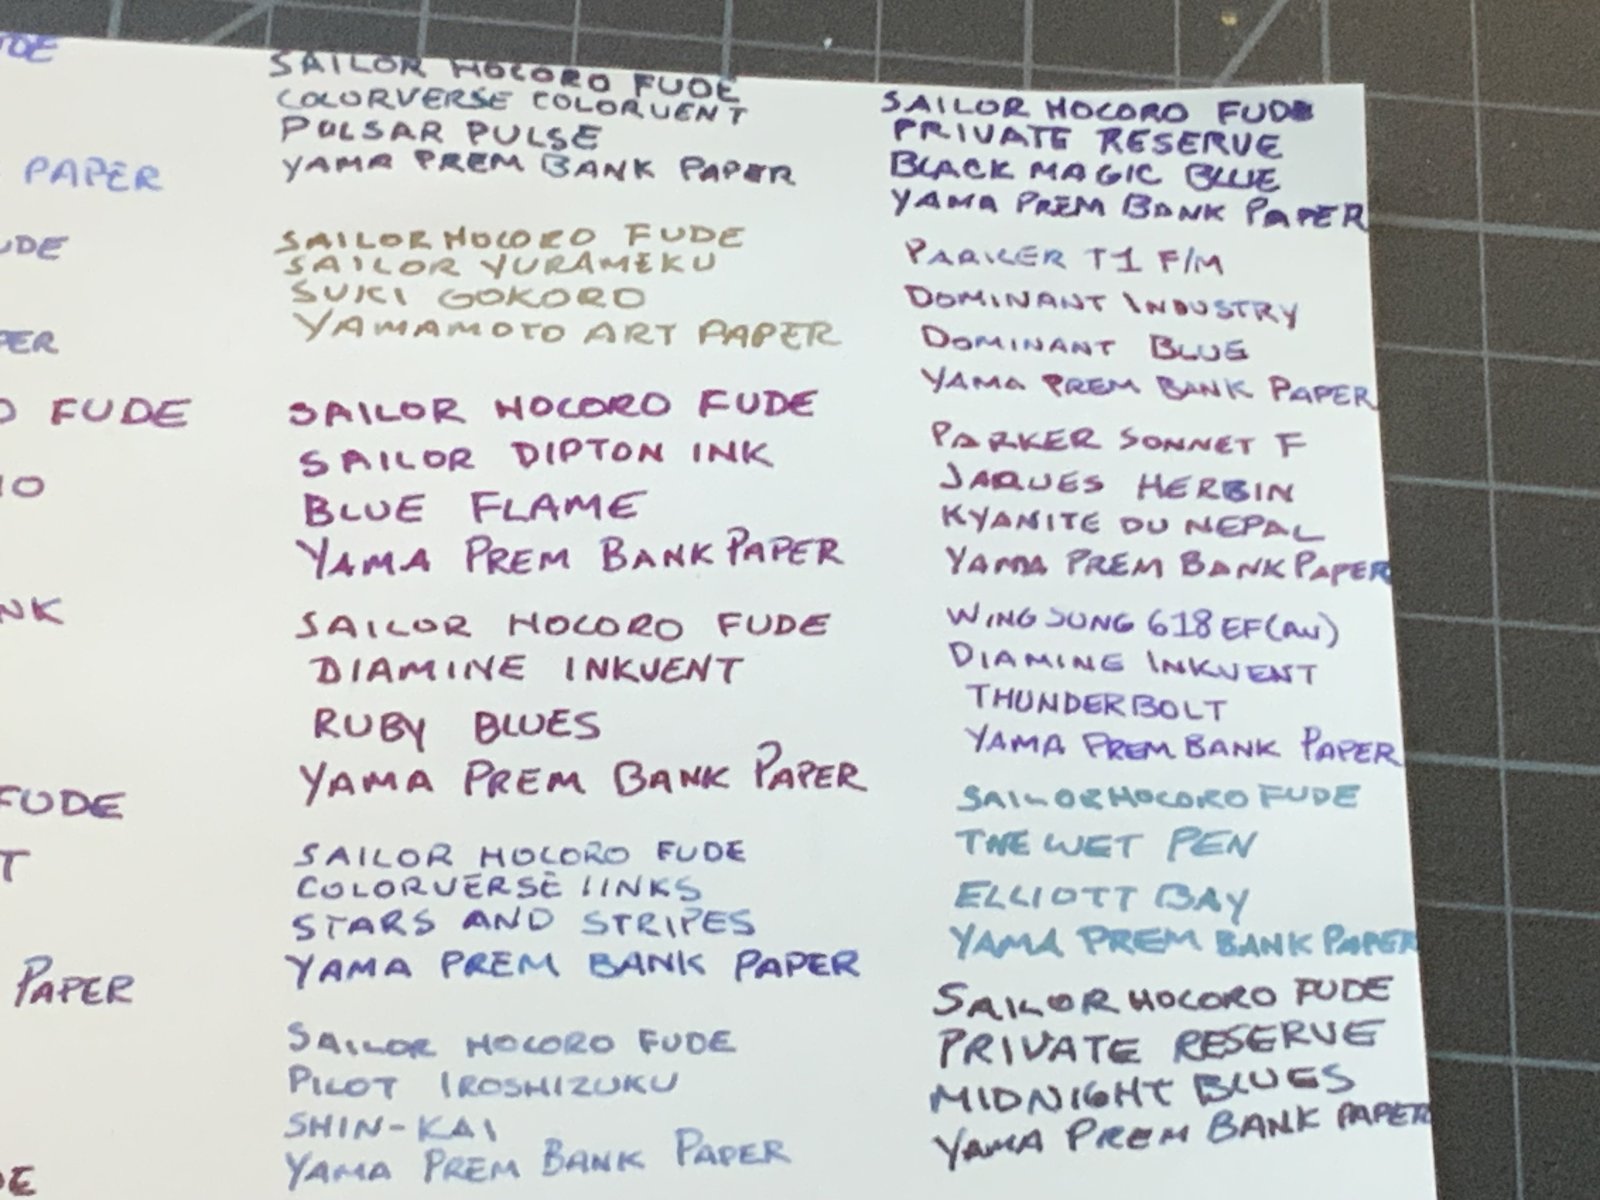 PAPER
FUDE
FUDE
NK
FUDE
T
PAPER
SAILOR HOCORO FUDE
COLORVERSE COLORVENT
PULSAR PULSE
YAMA PREM BANK PAPER
SAILOR HOCORO FUDE
SAILOR YURAMEKU
SUKI GOKORO
YAMAMOTO ART PAPER
SAILOR HOCORO FUDE
SAILOR DIPTON INK
BLUE FLAME
YAMA PREM BANK PAPER
SAILOR HOCORO FUDE
DIAMINE INKVENT
RUBY BLUES
YAMA PREM BANK PAPER
SAILOR HOCORO FUDE
COLORVERSE IINKS
STARS AND STRIPES
YAMA PREM BANK PAPER
SAILOR HOCORO FUDE
PILOT IROSHIZUKU
SHIN-KAI
YAMA PREM BANK PAPER
SAILOR HOCORO FUDE
PRIVATE RESERVE
BLACK MAGIC BLUE
YAMA PREM BANK PAPER
PARKER T1 F/M
DOMINANT INDUSTRY
DOMINANT BLUE
YAMA PREM BANK PAPER
PARKER SONNET F
JAQUES HERBIN
KYANITE DU NEPAL
YAMA PREM BANK PAPER
WING SUNG 618 EF(AU)
DIAMINE INKVENT
THUNDERBOLT
YAMA PREM BANK PAPER
SAILOR HOCORO FUDE
THE WET PEN
ELLIOTT BAY
YAMA PREM BANK PAPER
SAILOR HOCORO FUDE
PRIVATE RESERVE
MIDNIGHT BLUES
YAMA PREM BANK PAPER